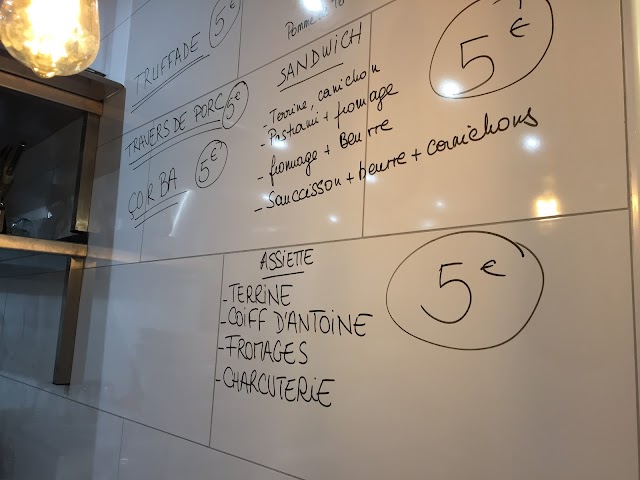 TRUFFADE 5€
TRAVERS DE PORC 5€
ÇORBA 5€
Pomme
SANDWICH 5€
- Terrine, cornichon
- Pastrami + fromage
- fromage + Beurre
- Saucisson + beurre + cornichons
ASSIETTE 5€
- TERRINE
- COIFF D'ANTOINE
- FROMAGES
- CHARCUTERIE